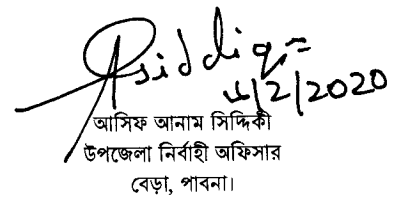 Asiddiq
4/2/2020
আসিফ আনাম সিদ্দিকী
উপজেলা নির্বাহী অফিসার
বেড়া, পাবনা।